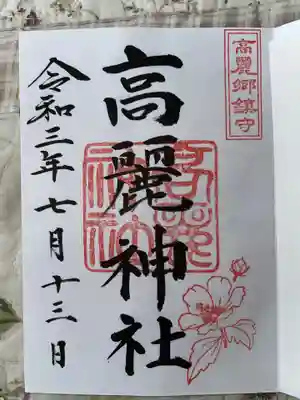 高麗郷鎮守
高麗神社
令和三年七月十三日